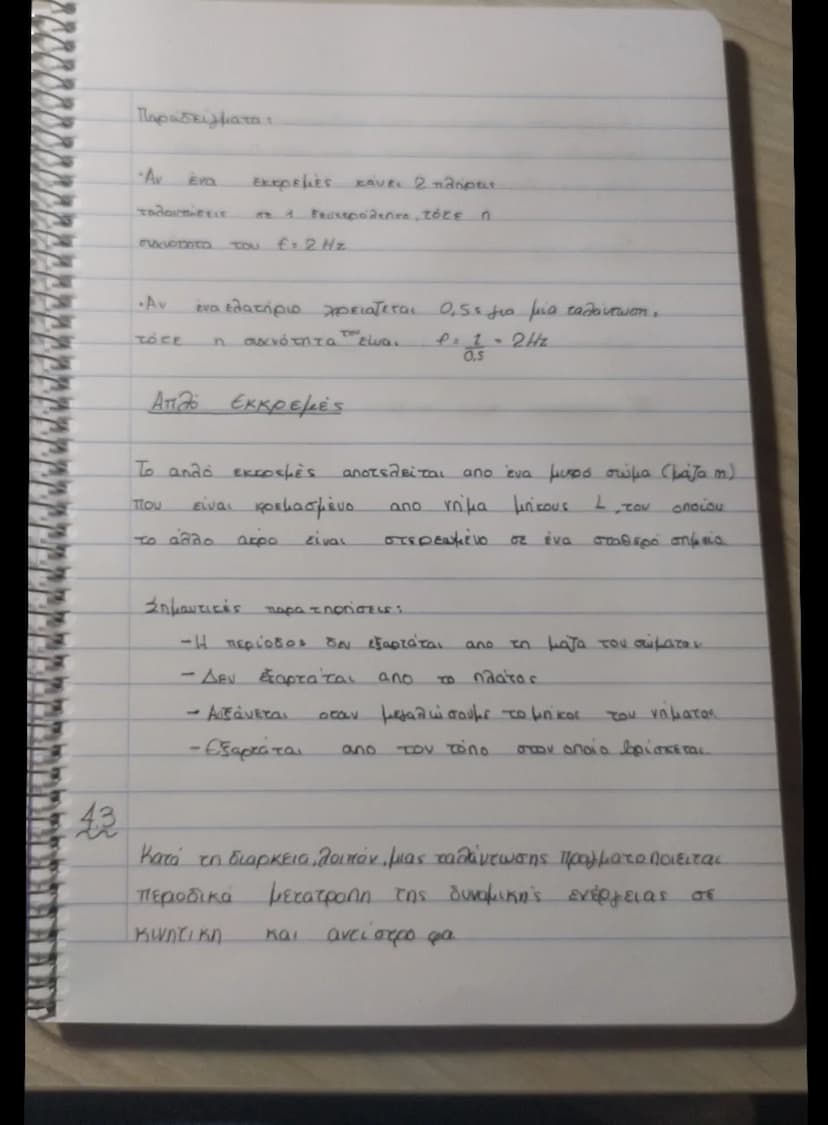 Παραδείγματα:
·Αν ένα εκκρεμές κάνει 2 πλήρεις
ταλαντώσεις σε 1 δευτερόλεπτο, τότε η
συχνότητα του f = 2 Hz
·Αν ένα ελατήριο χρειάζεται 0,5s για μία ταλάντωση,
τότε η συχνότητα του είναι f = 1/0,5 = 2Hz
Απλό Εκκρεμές
Το απλό εκκρεμές αποτελείται απο ένα μικρό σώμα (μάζα m)
που είναι κρεμασμένο απο νήμα μήκους L, του οποίου
το άλλο άκρο είναι στερεωμένο σε ένα σταθερό σημείο
Σημαντικές παρατηρήσεις:
- Η περίοδος δεν εξαρτάται απο τη μάζα του σώματος
- Δεν εξαρτάται απο το πλάτος
- Αυξάνεται οταν μεγαλώσουμε το μήκος του νήματος
- Εξαρτάται απο τον τόπο στον οποίο βρίσκεται
4.3
Κατά τη διάρκεια, λοιπόν, μιας ταλάντωσης πραγματοποιείται
περιοδικά μετατροπή της δυναμικής ενέργειας σε
κινητική και αντίστροφα